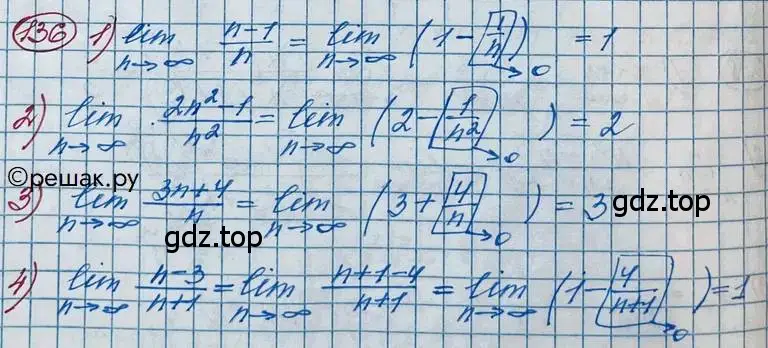 136 1) lim n→∞ (n-1)/n = lim n→∞ (1 - 1/n →0) = 1
2) lim n→∞ (2n²-1)/n² = lim n→∞ (2 - 1/n² →0) = 2
©решак.ру
3) lim n→∞ (3n+4)/n = lim n→∞ (3 + 4/n →0) = 3 gdz.top
gdz.top
4) lim n→∞ (n-3)/(n+1) = lim n→∞ (n+1-4)/(n+1) = lim n→∞ (1 - 4/(n+1) →0) = 1